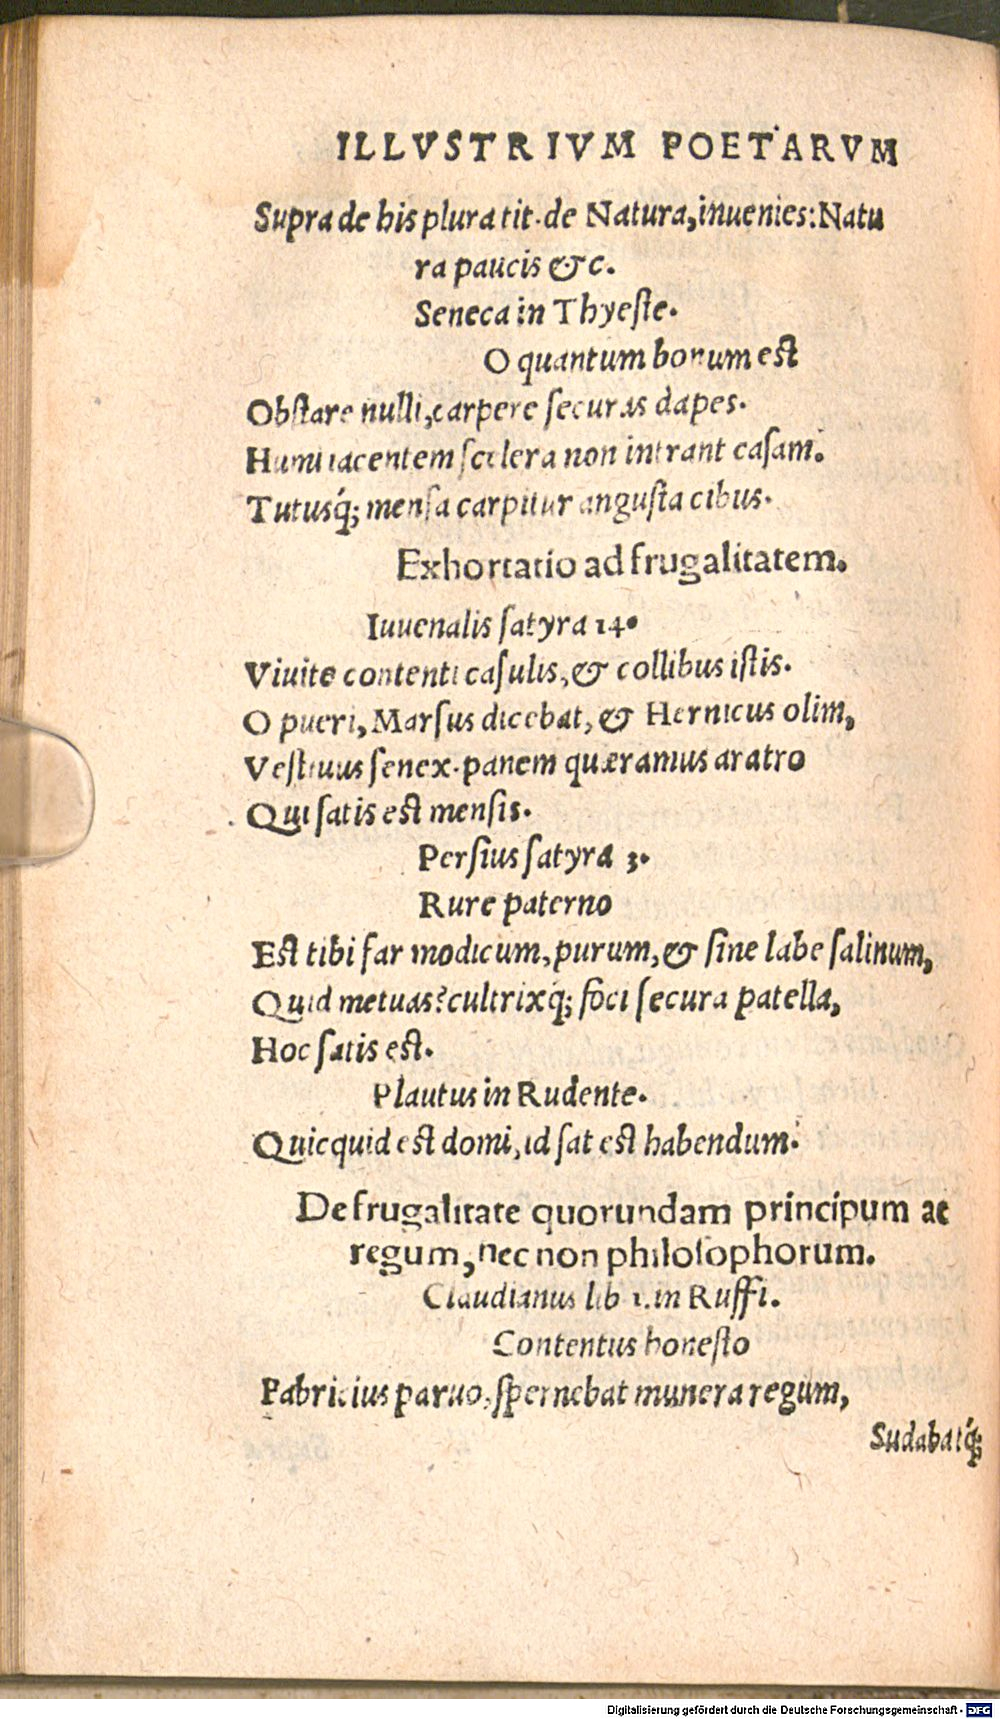 ILLVSTRIVM POETARVM
Supra de his plura tit. de Natura, inuenies: Natu
ra paucis &c.
Seneca in Thyeſte.
O quantum bonum eſt
Obſtare nulli, carpere ſecuras dapes.
Humi iacentem ſcelera non intrant caſam.
Tutusq́; menſa carpitur anguſta cibus.
Exhortatio ad frugalitatem.
Iuuenalis ſatyra 14.
Viuite contenti caſulis, & collibus iſtis.
O pueri, Marſus dicebat, & Hernicus olim,
Veſtinus ſenex. panem quæramus aratro
Qui ſatis eſt menſis.
Perſius ſatyra 3.
Rure paterno
Eſt tibi far modicum, purum, & ſine labe ſalinum,
Quid metuas? cultrixq́; foci ſecura patella,
Hoc ſatis eſt.
Plautus in Rudente.
Quicquid eſt domi, id ſat eſt habendum.
De frugalitate quorundam principum ac
regum, nec non philoſophorum.
Claudianus lib 1. in Ruffi.
Contentus honeſto
Fabricius paruo, ſpernebat munera regum,
Sudabatq́;
Digitalisierung gefördert durch die Deutsche Forschungsgemeinschaft - DFG